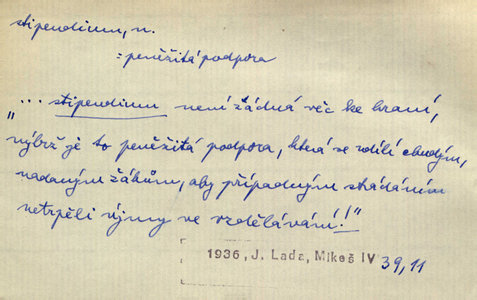 stipendium, n.
: peněžitá podpora
"... stipendium není žádná věc ke hraní,
nýbrž je to peněžitá podpora, která se udílí chudým,
nadaným žákům, aby případným strádáním
netrpěli újmy ve vzdělávání!"
1936, J. Lada, Mikeš IV 39,11